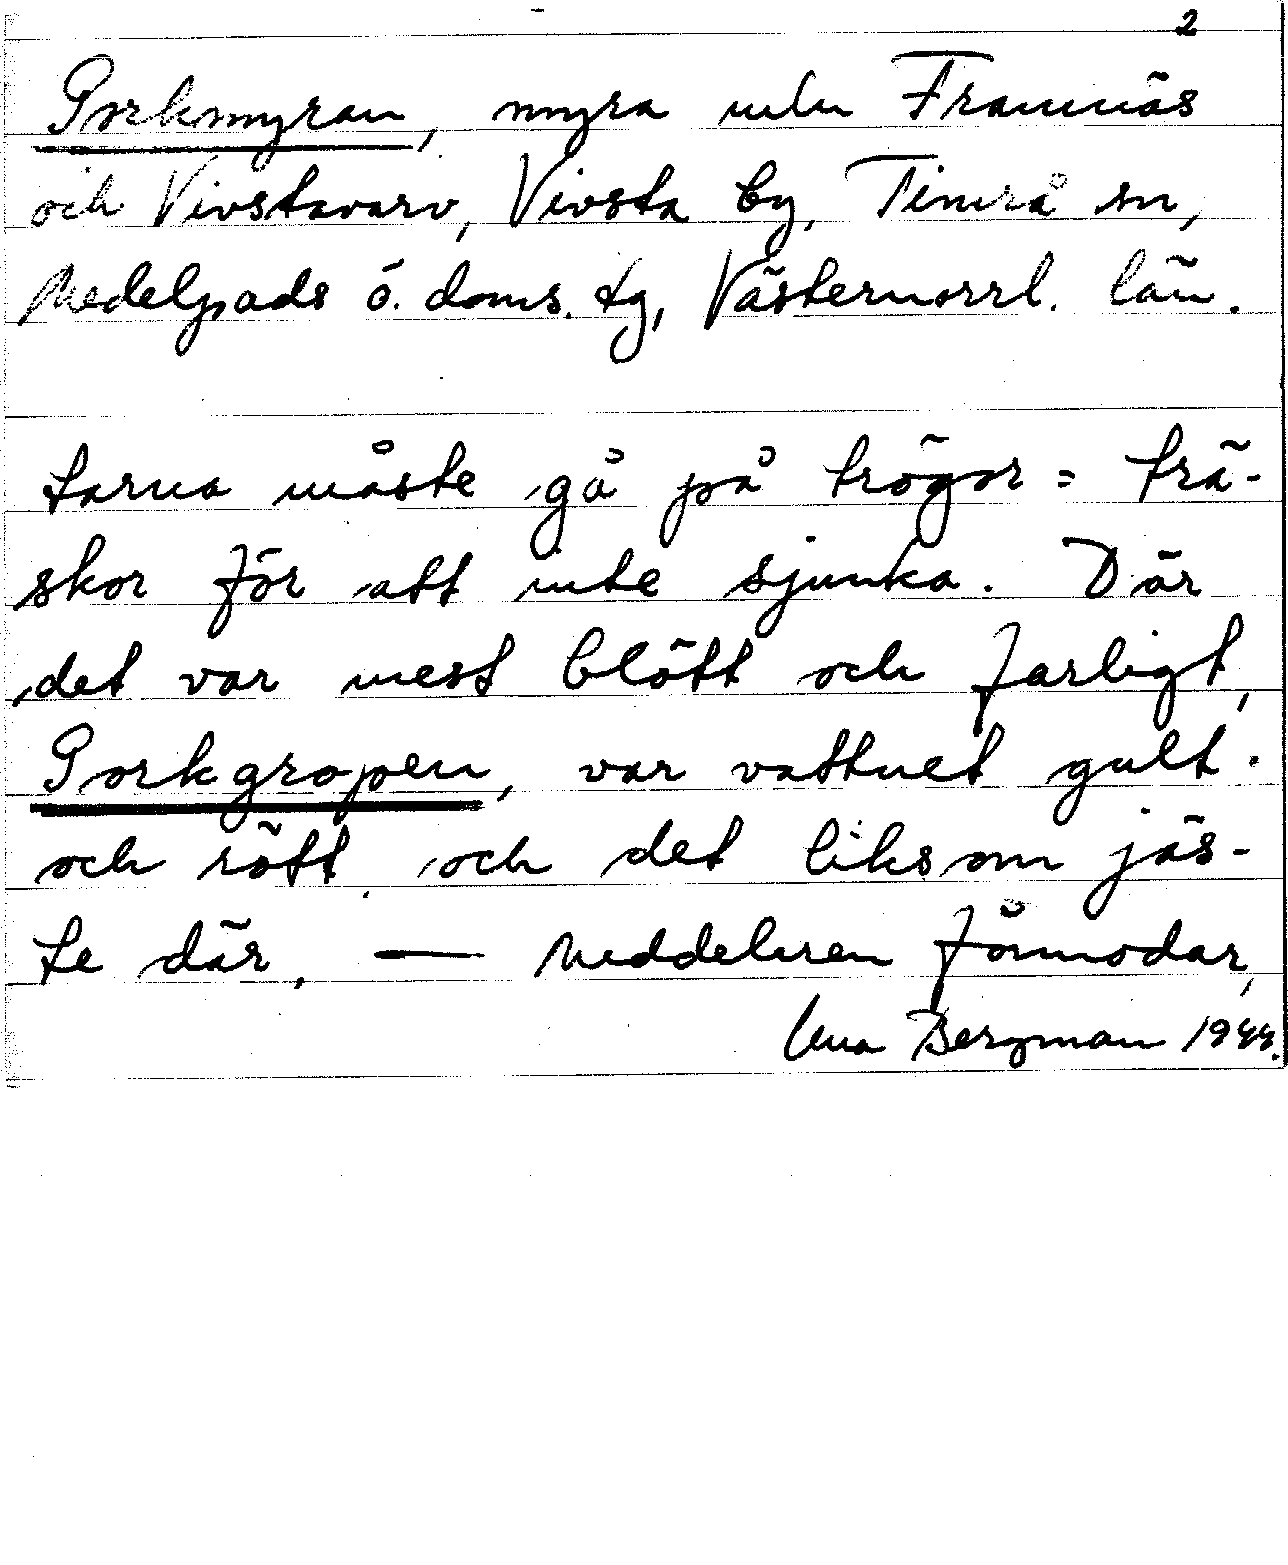 2
Porkmyran, myra mln Frannäs
och Vivstavarv, Vivsta by, Timrå sn,
Medelpads ö. doms. tg, Västernorrl. län.
tarna måste gå på trögor = trä-
skor för att inte sjunka. Där
det var mest blött och farligt,
Porkgropen, var vattnet gult
och rött och det liksom jäs-
te där, — Meddelaren förmodar,
Una Bergman 1944.